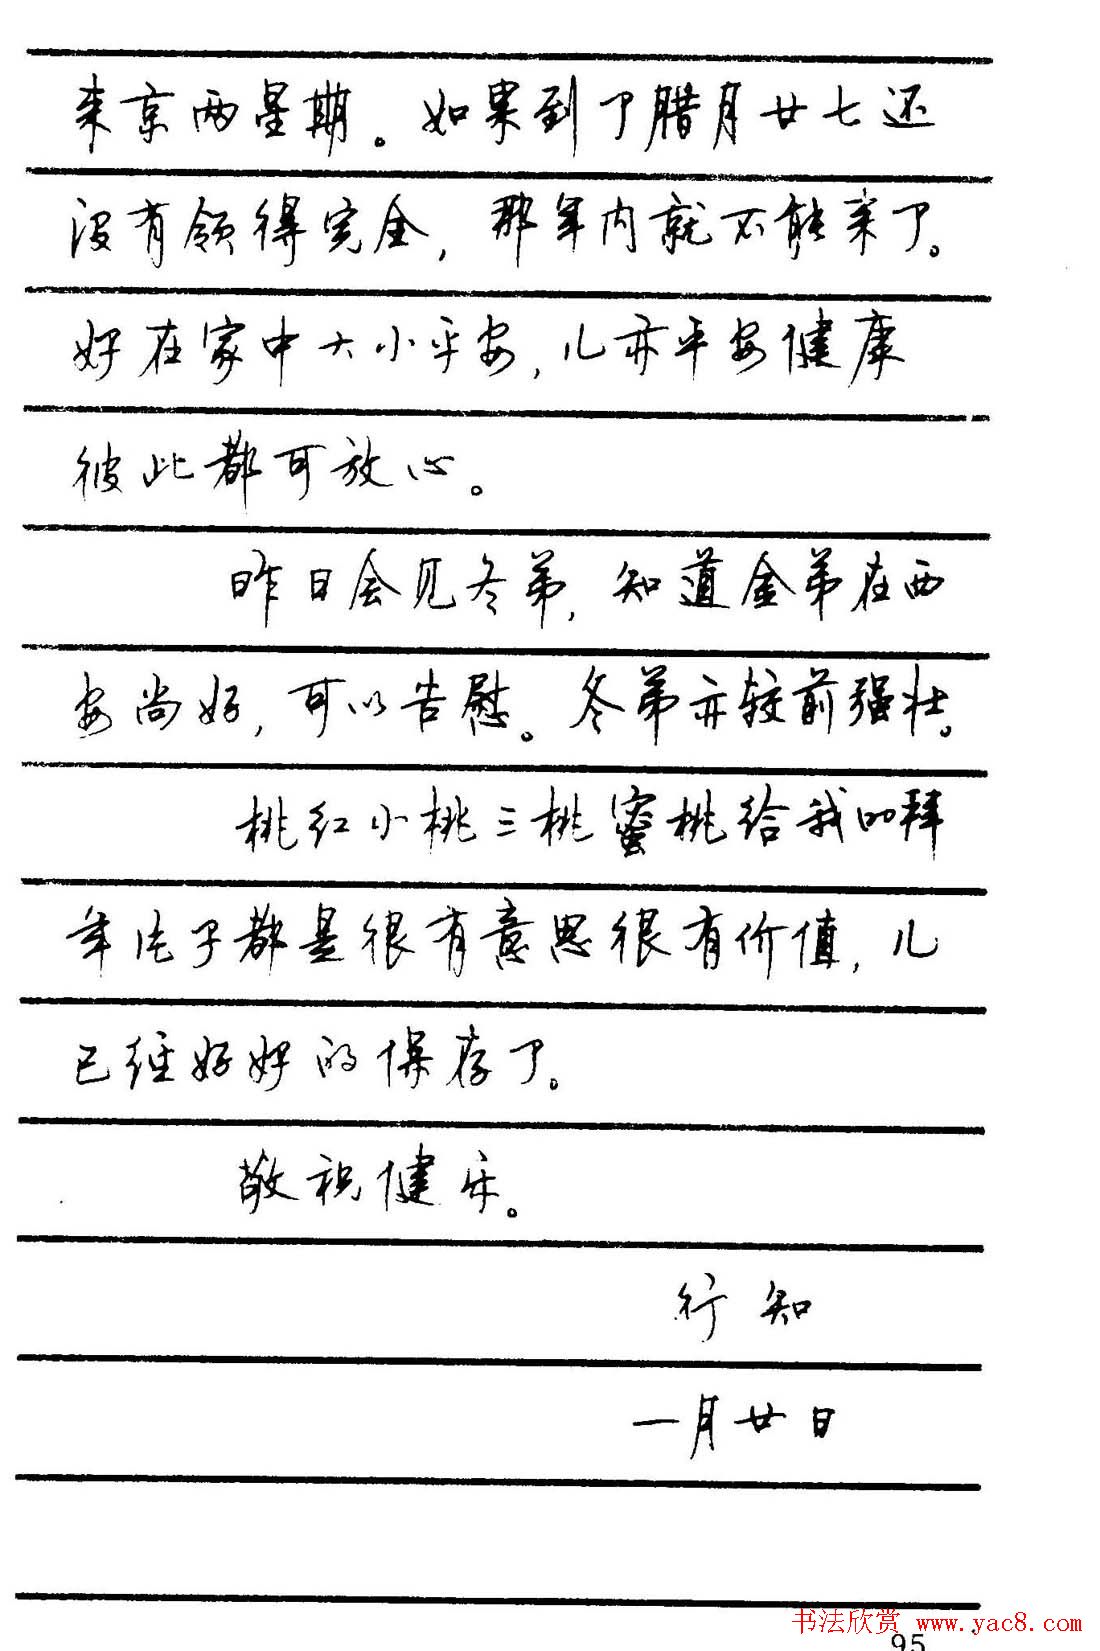 来京两星期。如果到了腊月廿七还
没有领得完全，那年内就不能来了。
好在家中大小平安，儿亦平安健康
彼此都可放心。
昨日会见冬弟，知道金弟在西
安尚好，可以告慰。冬弟亦较前强壮。
桃红小桃三桃蜜桃给我的拜
年片子都是很有意思很有价值，儿
已经好好的保存了。
敬祝健乐。
行知
一月廿日
书法欣赏 www.yac8.com
95